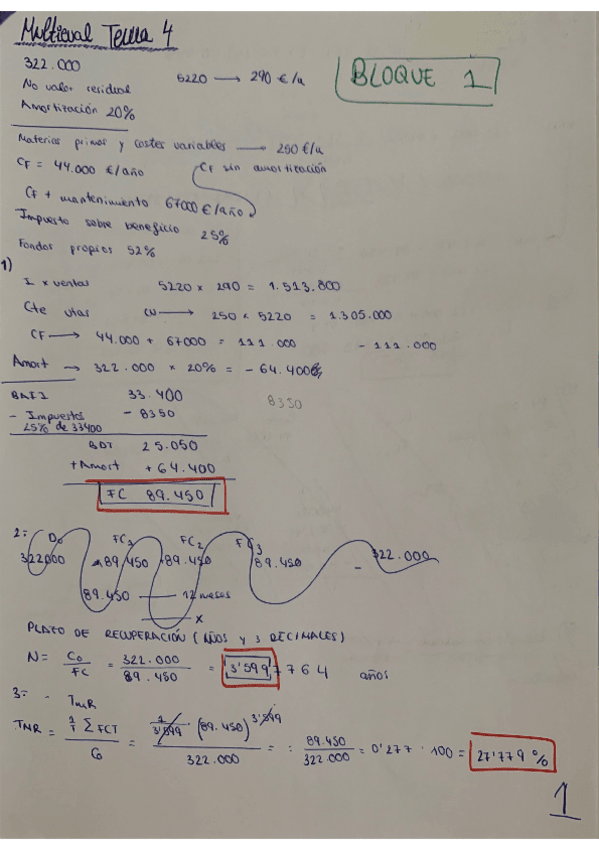 Multieval Tema 4
BLOQUE 1
322.000
No valor residual
5220 → 290 €/u
Amortización 20%
Materias primas y costes variables → 250 €/u
CF = 44.000 €/año
CF sin amortización
CF + mantenimiento 67000 €/año
Impuesto sobre beneficio 25%
Fondos propios 52%
1)
I x ventas 5220 x 290 = 1.513.800
Cte vtas CV → 250 x 5220 = 1.305.000
CF → 44.000 + 67000 = 111.000 - 111.000
Amort → 322.000 x 20% = - 64.400
BAII 33.400
8350
- Impuestos - 8350
25% de 33400
BDT 25.050
+ Amort + 64.400
FC 89.450
2=
D0 FC1 FC2 FC3
322000 +89.450 +89.450 89.450 - 322.000
89.450 — 12 meses
x
PLAZO DE RECUPERACIÓN (AÑOS Y 3 DECIMALES)
N = C0/FC = 322.000/89.450 = 3'5997764 años
3= - TMR
TMR = 1/T ∑ FCT / C0 = 1/3'599 (89.450) 3'599 / 322.000 = : 89.450/322.000 = 0'277 · 100 = 27'779 %
1